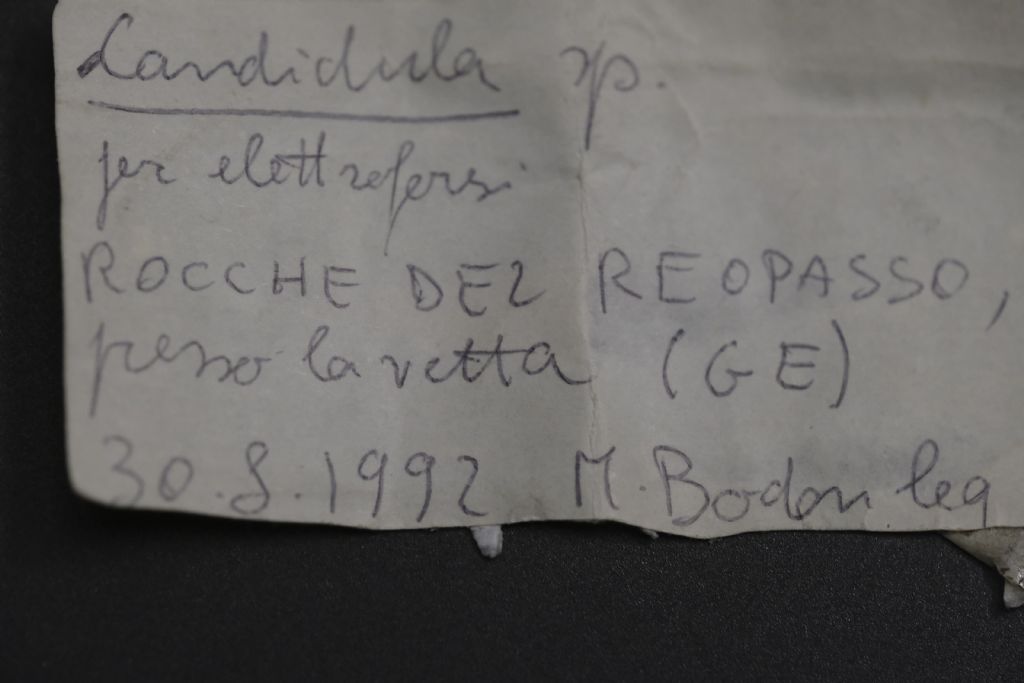 Candidula sp.
per elettroforesi
ROCCHE DEL REOPASSO,
presso la vetta (GE)
30.8.1992 M. Bodon leg